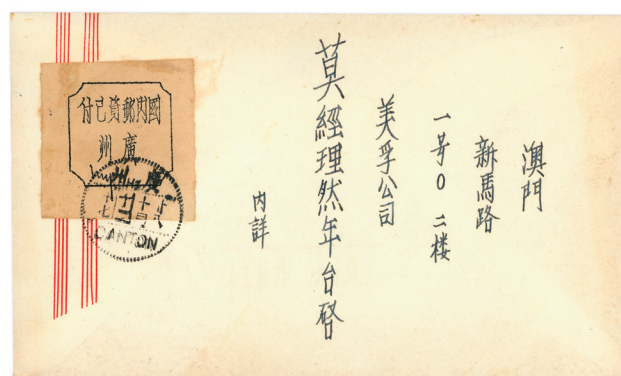 澳門
新馬路
一号0二楼
美孚公司
莫經理然年台啓
内詳
國內郵資已付
廣州
廣州
CANTON